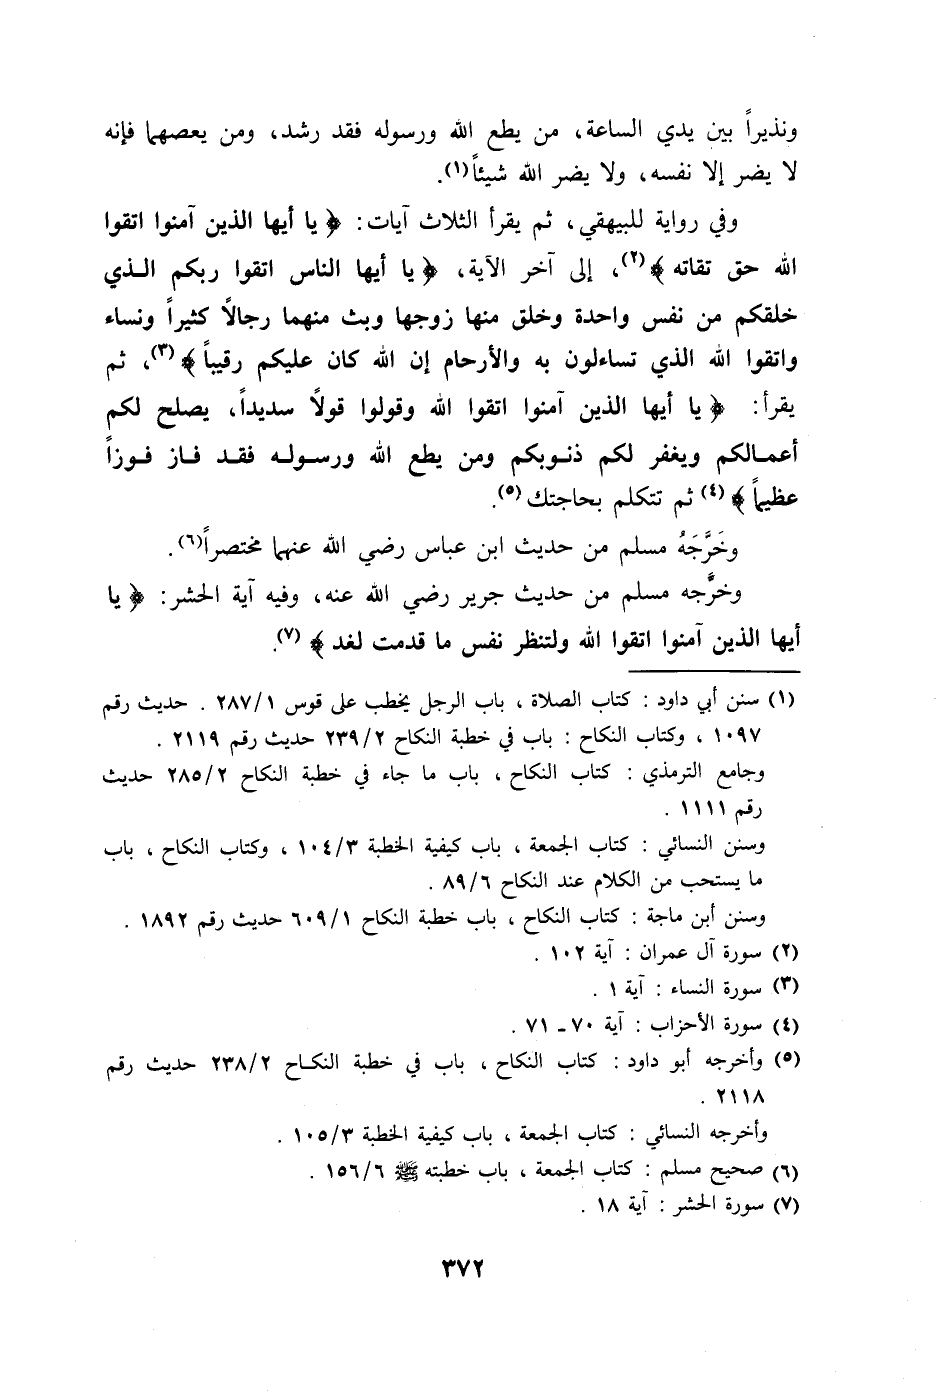 ونذيراً بين يدي الساعة، من يطع الله ورسوله فقد رشد، ومن يعصهما فإنه
لا يضر إلا نفسه، ولا يضر الله شيئاً(١).
وفي رواية للبيهقي، ثم يقرأ الثلاث آيات: ﴿ يا أيها الذين آمنوا اتقوا
الله حق تقاته ﴾(٢)، إلى آخر الآية، ﴿ يا أيها الناس اتقوا ربكم الـذي
خلقكم من نفس واحدة وخلق منها زوجها وبث منهما رجالاً كثيراً ونساء
واتقوا الله الذي تساءلون به والأرحام إن الله كان عليكم رقيباً ﴾(٣)، ثم
يقرأ: ﴿ يا أيها الذين آمنوا اتقوا الله وقولوا قولاً سديداً، يصلح لكم
أعمـالكم ويغفر لكم ذنـوبكم ومن يطع الله ورسولـه فقـد فـاز فـوزاً
عظيماً ﴾(٤) ثم تتكلم بحاجتك(٥).
وخَرَّجَهُ مسلم من حديث ابن عباس رضي الله عنهما مختصراً(٦).
وخرَّجه مسلم من حديث جرير رضي الله عنه، وفيه آية الحشر: ﴿ يا
أيها الذين آمنوا اتقوا الله ولتنظر نفس ما قدمت لغد ﴾(٧).
(١) سنن أبي داود : كتاب الصلاة ، باب الرجل يخطب على قوس ٢٨٧/١ . حديث رقم
١٠٩٧ ، وكتاب النكاح : باب في خطبة النكاح ٢٣٩/٢ حديث رقم ٢١١٩ .
وجامع الترمذي : كتاب النكاح ، باب ما جاء في خطبة النكاح ٢٨٥/٢ حديث
رقم ١١١١ .
وسنن النسائي : كتاب الجمعة ، باب كيفية الخطبة ١٠٤/٣ ، وكتاب النكاح ، باب
ما يستحب من الكلام عند النكاح ٨٩/٦ .
وسنن أبن ماجة : كتاب النكاح ، باب خطبة النكاح ٦٠٩/١ حديث رقم ١٨٩٢ .
(٢) سورة آل عمران : آية ١٠٢ .
(٣) سورة النساء : آية ١ .
(٤) سورة الأحزاب : آية ٧٠ - ٧١ .
(٥) وأخرجه أبو داود : كتاب النكاح ، باب في خطبة النكـاح ٢٣٨/٢ حديث رقم
٢١١٨ .
وأخرجه النسائي : كتاب الجمعة ، باب كيفية الخطبة ١٠٥/٣ .
(٦) صحيح مسلم : كتاب الجمعة ، باب خطبته ﷺ ١٥٦/٦ .
(٧) سورة الحشر : آية ١٨ .
٣٧٢